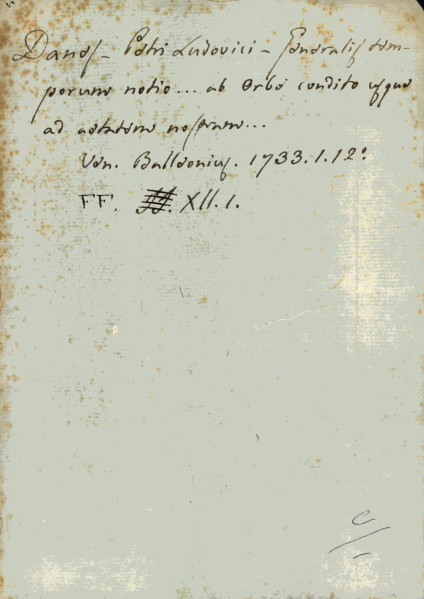 Danes - Petri Ludovici - Generalis tem-
porum notio... ab Orbe condito usque
ad aetatem nostram...
Ven. Balleonius. 1733. 1. 12º
FF. XII. 1.